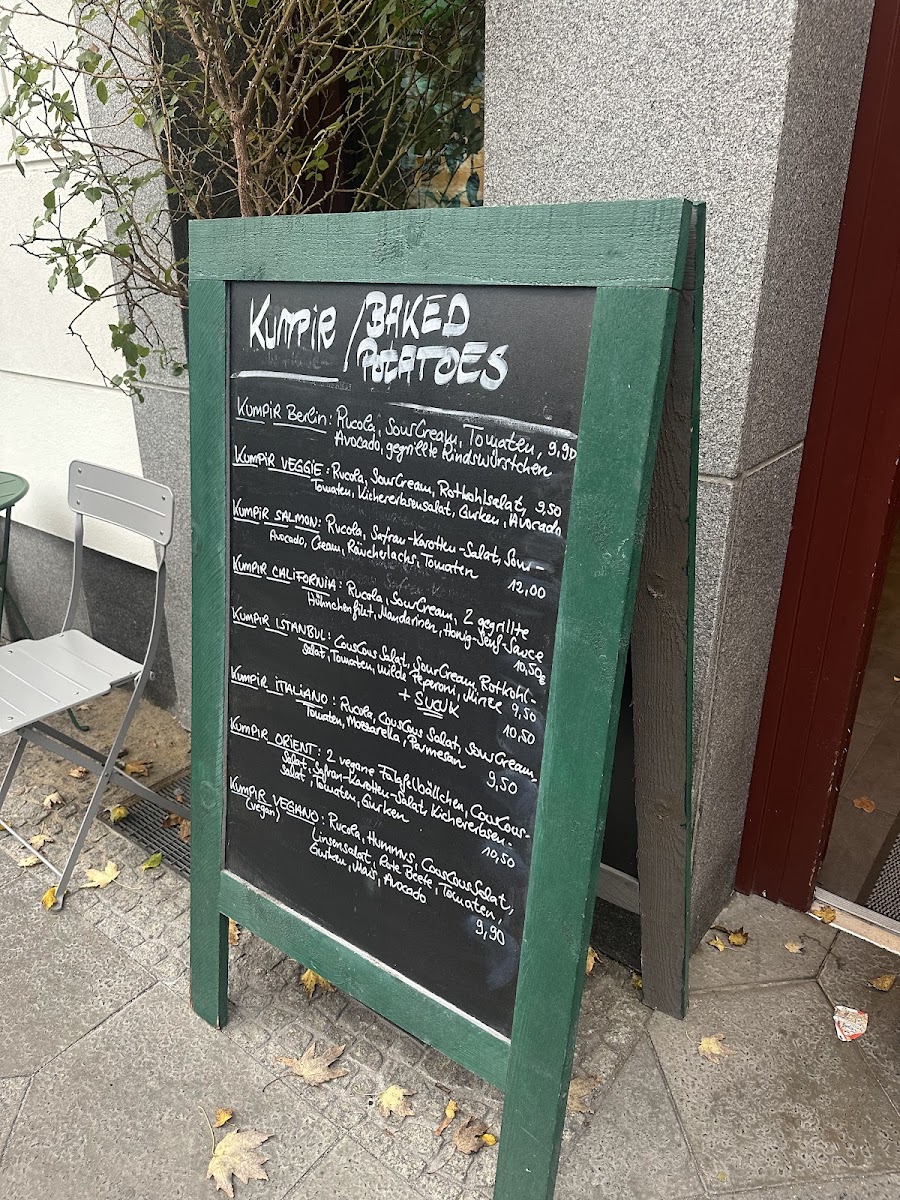 KUMPIR / BAKED
POTATOES
KUMPIR Berlin: Rucola, SourCream, Tomaten, 9,90
Avocado, gegrillte Rindswürstchen
KUMPIR VEGGIE: Rucola, SourCream, Rotkohlsalat, 9,50
Tomaten, Kichererbsensalat, Gurken, Avocado
KUMPIR SALMON: Rucola, Safran-Karotten-Salat, Sour-
Avocado, Cream, Räucherlachs, Tomaten 12,00
KUMPIR CALIFORNIA: Rucola, SourCream, 2 gegrillte
Hühnchenfilet, Mandarinen, Honig-Senf-Sauce
10,50€
KUMPIR ISTANBUL: CousCous Salat, SourCream, Rotkohl-
salat, Tomaten, milde Peperoni, Minze 9,50
+ SUCUK
10,50
KUMPIR ITALIANO: Rucola, CousCous Salat, SourCream,
Tomaten, Mozzarella, Parmesan 9,50
KUMPIR ORIENT: 2 vegane Falafelbällchen, CousCous-
Salat, Safran-Karotten-Salat, Kichererbsen-
salat, Tomaten, Gurken 10,50
KUMPIR VEGANO: Rucola, Hummus, CousCousSalat,
(vegan) Linsensalat, Rote Beete, Tomaten,
Gurken, Mais, Avocado 9,90